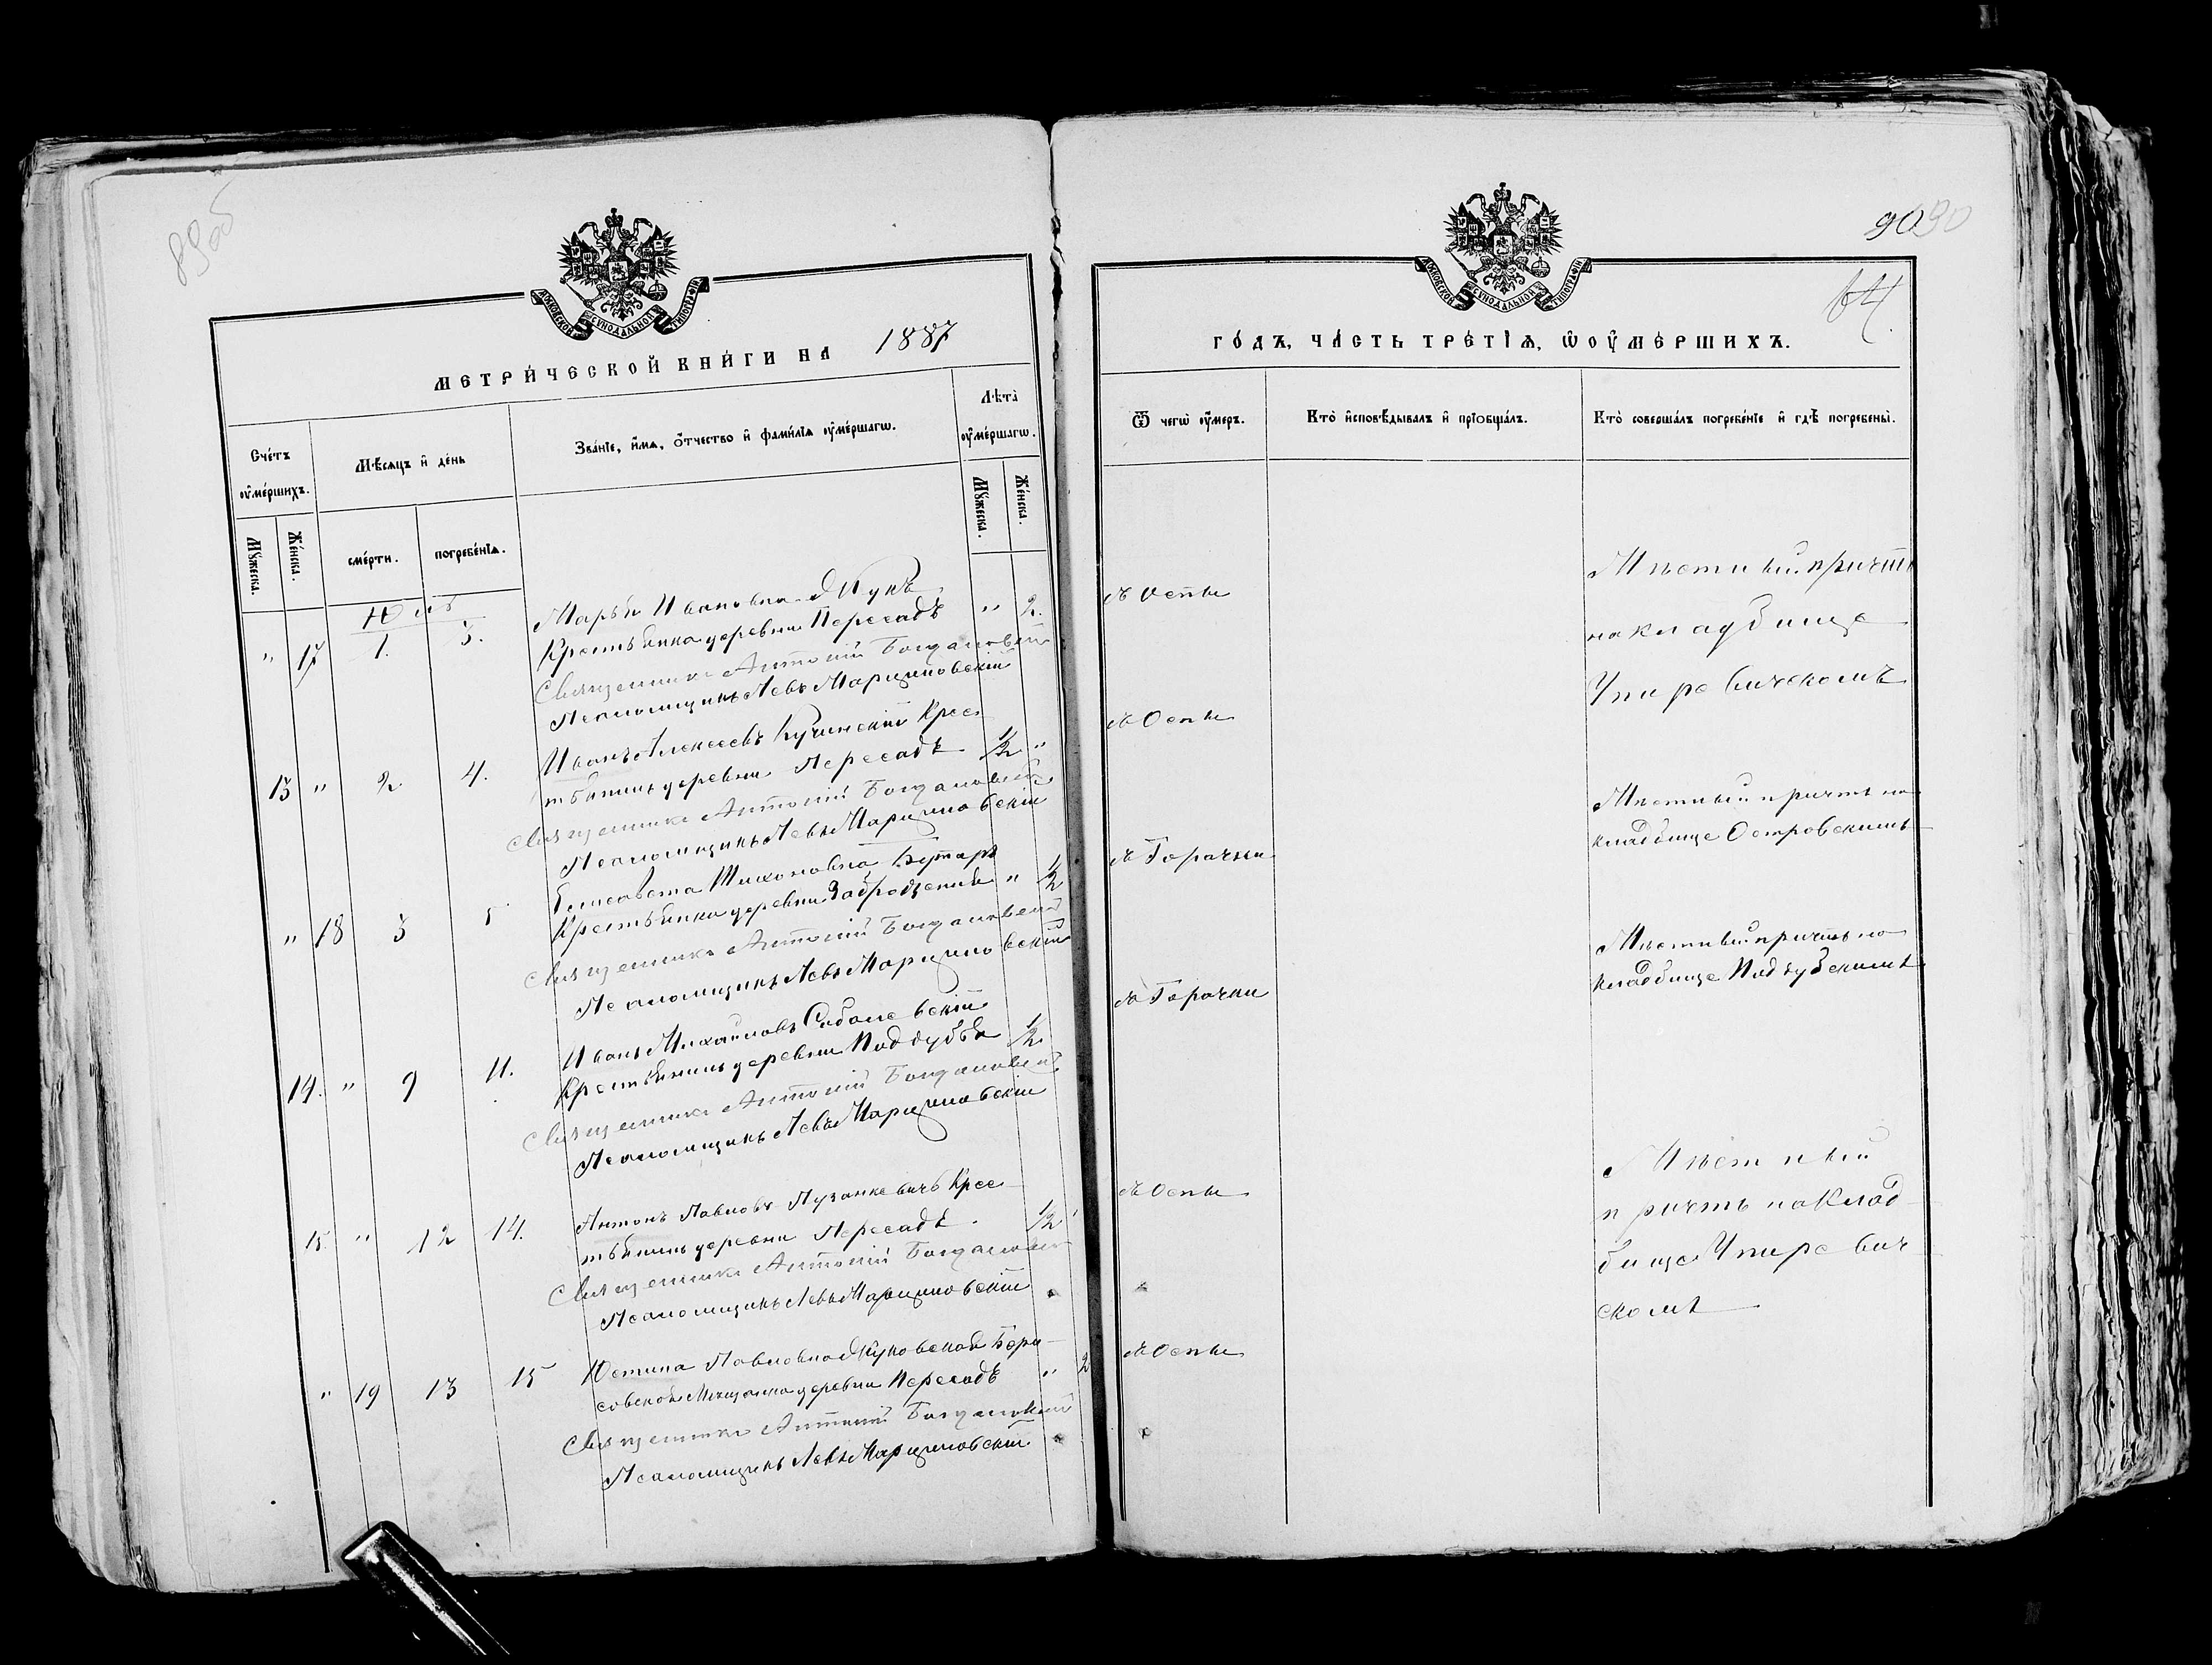 89 об
МОСКОВСКОЙ СѴНОДАЛЬНОЙ ТИПОГРАФІИ
МЕТРИ́ЧЕСКОЙ КНИ́ГИ НА 1887
Сче́тъ ᲂу҆ме́ршихъ.
Мѣ́сѧцъ и҆ де́нь
Зва́нїе, и҆́мѧ, ѻ҆́тчество и҆ фами́лїѧ ᲂу҆ме́ршагѡ.
Лѣта̀ ᲂу҆ме́ршагѡ.
Мꙋ́жеска.
Же́нска.
сме́рти.
погребе́нїѧ.
Мꙋ́жеска.
Же́нска.
Юль
" 17 1. 3. Марья Ивановна Жукъ
Крестьянка деревни Пересадъ " 2.
Священникъ Антоній Богдановскій
Псаломщикъ Левъ Марциновскій
13 " 2 4. Иванъ Алексеевъ Кучинскій Крес-
тьянинъ деревни Пересадъ 1/2 "
Священникъ Антоній Богдановскій
Псаломщикъ Левъ Марциновскій
" 18 3 5 Елисавета Тихоновна
Крестьянка деревни " 1/2
Священникъ Антоній Богдановскій
Псаломщикъ Левъ Марциновскій
14. " 9 11. Иванъ Михайловъ Соболевскій
Крестьянинъ деревни Поддубья 1/2
Священникъ Антоній Богдановскій
Псаломщикъ Левъ Марциновскій
15. " 12 14. Антонъ Павловъ Лузанкевичъ Крес-
тьянинъ деревни Пересадъ. 1/2 "
Священникъ Антоній Богдановскій
Псаломщикъ Левъ Марциновскій
" 19 13 15 Юстина Павловна Жуковская Бори-
совская Мещанка деревни Пересадъ " 2
Священникъ Антоній Богдановскій
Псаломщикъ Левъ Марциновскій
90 90
МОСКОВСКОЙ СѴНОДАЛЬНОЙ ТИПОГРАФІИ
64
ГО́ДЪ, ЧА́СТЬ ТРЕ́ТЇѦ, Ѡ҆ ОУ҆МЕ́РШИХЪ.
Ѿ чегѡ̀ ᲂу҆́меръ.
Кто̀ и҆сповѣ́дывалъ и҆ прїѡбща́лъ.
Кто̀ соверша́лъ погребе́нїе и҆ гдѣ̀ погребены̀.
Ѿ Оспы
Мѣстный причтъ
на кладбище
Упиревичскомъ
Ѿ Оспы
Ѿ Горачки
Мѣстный причтъ на
кладбище Островскимъ
Ѿ Горачки
Мѣстный причтъ на
кладбище Поддубскимъ
Ѿ Оспы
Мѣстный
причтъ на клад-
бище Упиревич-
скомъ
Ѿ Оспы